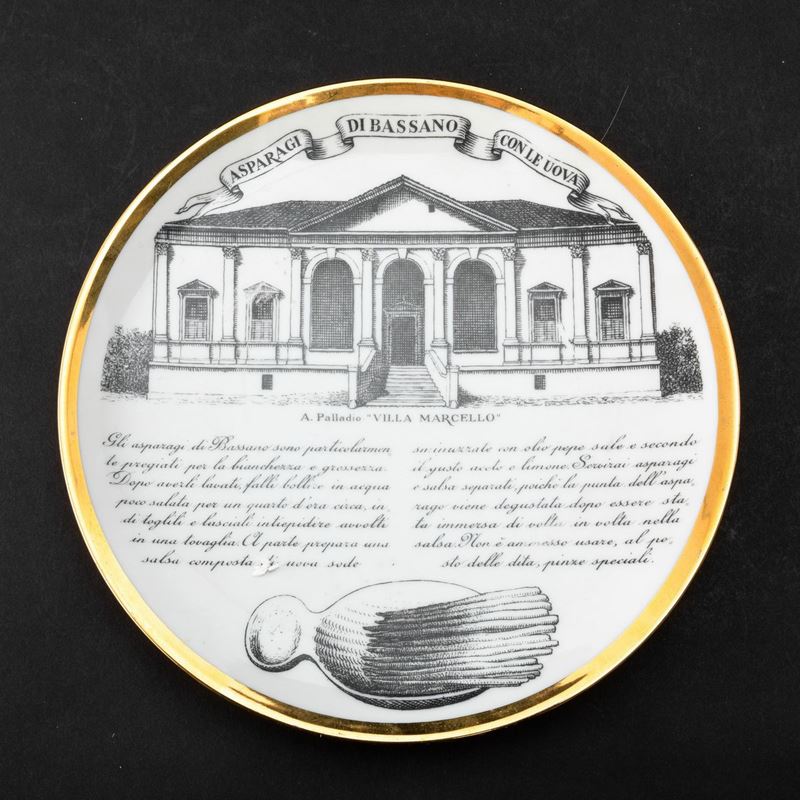 ASPARAGI DI BASSANO CON LE UOVA
A. Palladio "VILLA MARCELLO"
Gli asparagi di Bassano sono particolarmen
te pregiati per la bianchezza e grossezza.
Dopo averli lavati, falli bollire in acqua
poco salata per un quarto d'ora circa, in_
di toglili e lasciali intiepidire avvolti
in una tovaglia. A parte prepara una
salsa composta di uova sode
sminuzzate con olio pepe sale e secondo
il gusto aceto e limone. Servirai asparagi
e salsa separati, poiché la punta dell'aspa_
rago viene degustata dopo essere sta_
ta immersa di volta in volta nella
salsa. Non è ammesso usare, al po_
sto delle dita, pinze speciali.